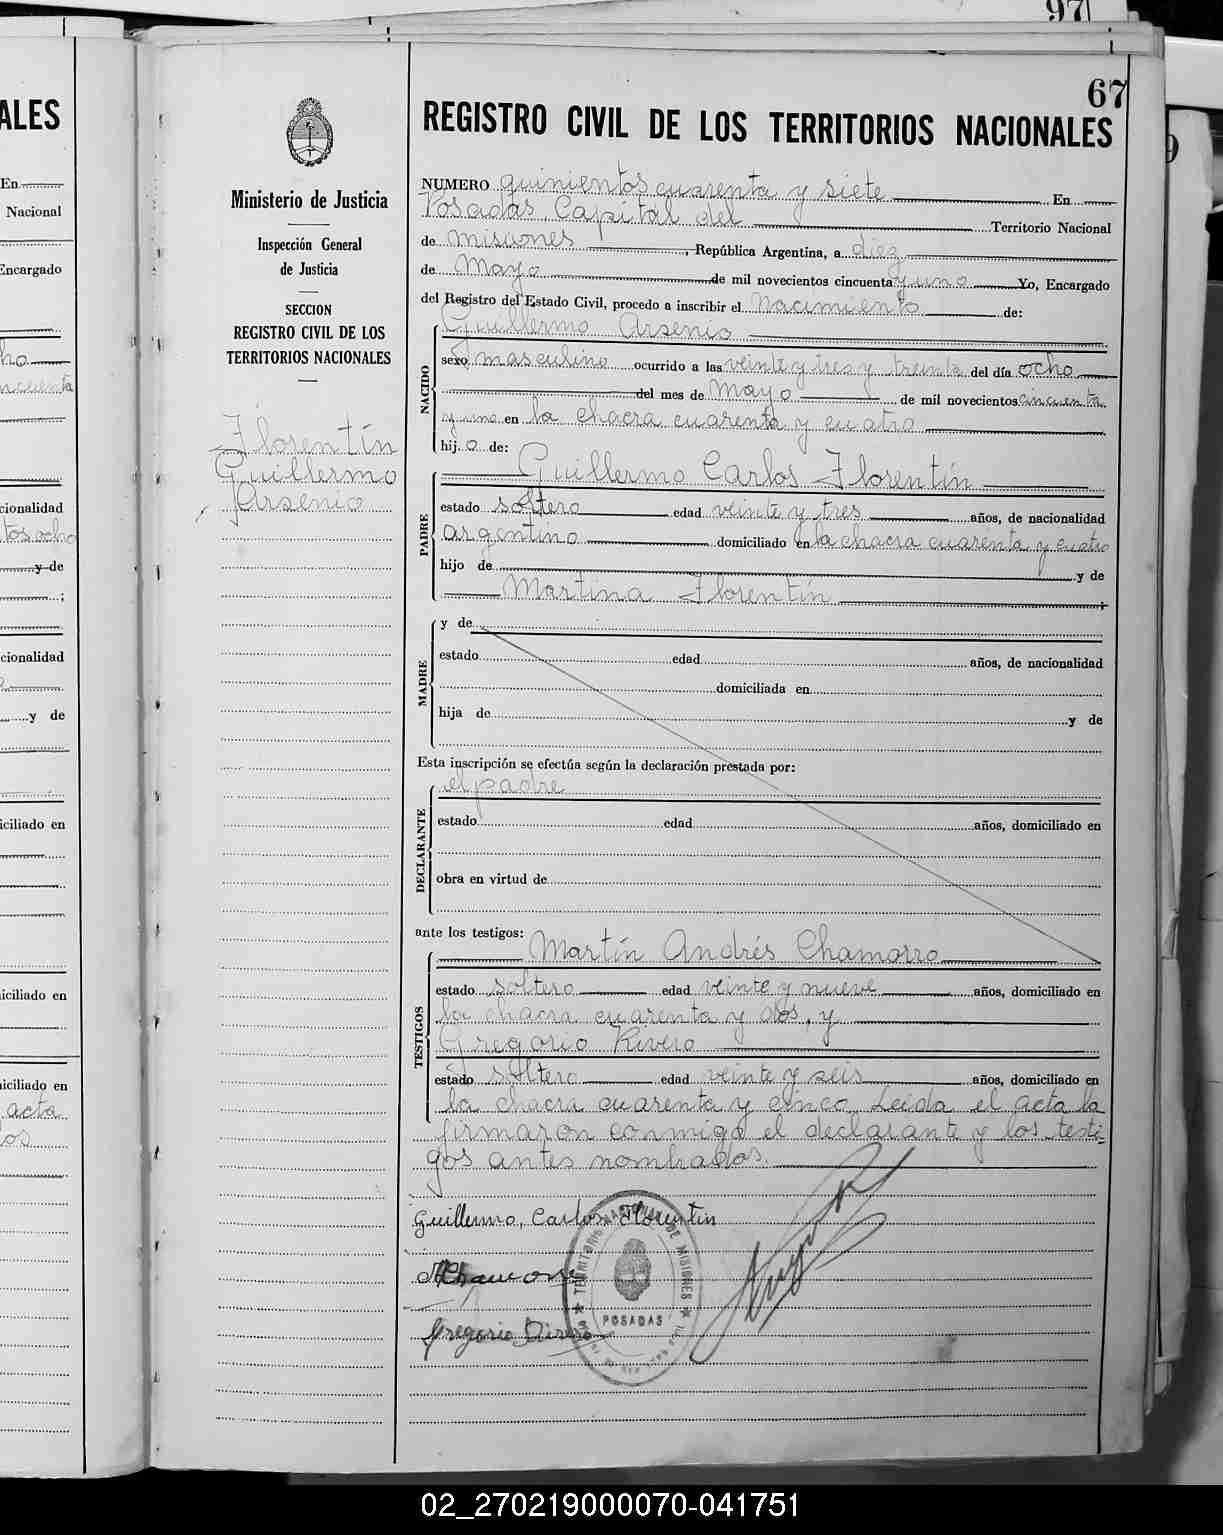 97
67
REGISTRO CIVIL DE LOS TERRITORIOS NACIONALES
Ministerio de Justicia
Inspección General
de Justicia
SECCION
REGISTRO CIVIL DE LOS
TERRITORIOS NACIONALES
Florentín
Guillermo
Arsenio
NUMERO quinientos cuarenta y siete En
Posadas Capital del Territorio Nacional
de Misiones, República Argentina, a diez
de Mayo de mil novecientos cincuenta y uno Yo, Encargado
del Registro del Estado Civil, procedo a inscribir el Nacimiento de:
Guillermo Arsenio
NACIDO
sexo masculino ocurrido a las veinte y tres y treinta del día ocho
del mes de Mayo de mil novecientos cincuenta
y uno en la chacra cuarenta y cuatro
hij o de:
Guillermo Carlos Florentín
PADRE
estado soltero edad veinte y tres años, de nacionalidad
argentino domiciliado en la chacra cuarenta y cuatro
hijo de y de
Martina Florentín ;
MADRE
y de
estado edad años, de nacionalidad
domiciliada en
hija de y de
Esta inscripción se efectúa según la declaración prestada por:
el padre
DECLARANTE
estado edad años, domiciliado en
obra en virtud de
ante los testigos:
Martín Andrés Chamorro
TESTIGOS
estado soltero edad veinte y nueve años, domiciliado en
la chacra cuarenta y dos, y
Gregorio Rivero
estado soltero edad veinte y seis años, domiciliado en
la chacra cuarenta y cinco. Leída el acta la
firmaron conmigo el declarante y los testi-
gos antes nombrados.
Guillermo, Carlos Florentin
AChamorro
Gregorio Rivero
TERRITORIO NACIONAL DE MISIONES
POSADAS
ALES
En
Nacional
Encargado
cho
ncuenta
cionalidad
tos ocho
y de
;
cionalidad
y de
iciliado en
iciliado en
iciliado en
acta
los
9
02_270219000070-041751